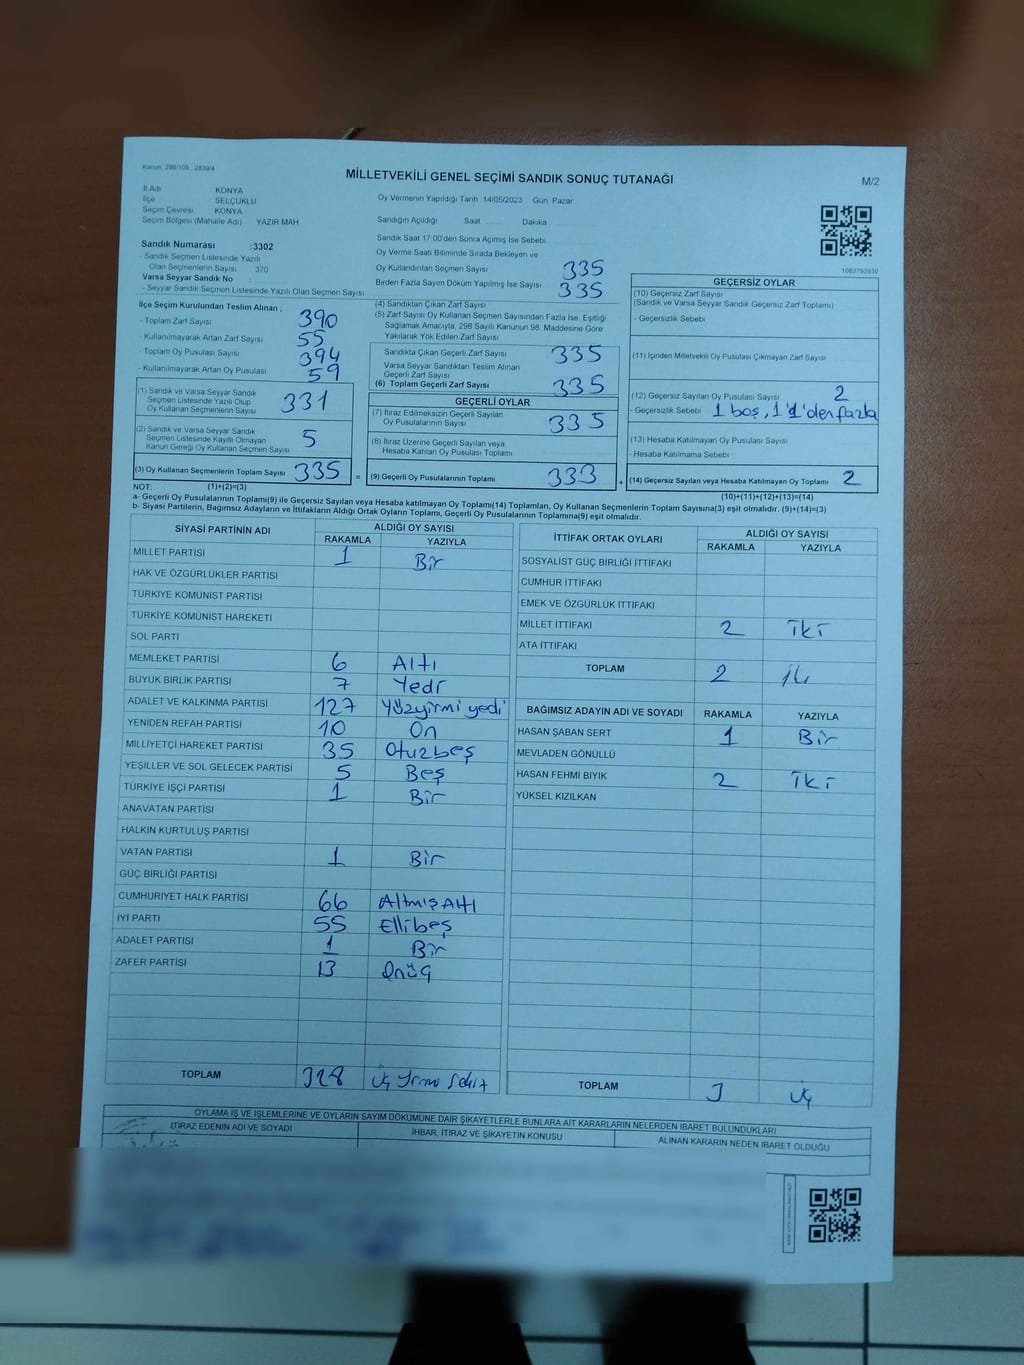 Kanun: 298/105 , 2839/4
MİLLETVEKİLİ GENEL SEÇİMİ SANDIK SONUÇ TUTANAĞI
M/2
İl Adı KONYA
İlçe SELÇUKLU
Seçim Çevresi KONYA
Seçim Bölgesi (Mahalle Adı) YAZIR MAH
Oy Vermenin Yapıldığı Tarih :14/05/2023 Gün: Pazar
Sandığın Açıldığı Saat Dakika
Sandık Saat 17:00'den Sonra Açımış İse Sebebi
Sandık Numarası :3302
- Sandık Seçmen Listesinde Yazılı
Olan Seçmenlerin Sayısı 370
Varsa Seyyar Sandık No :
- Seyyar Sandık Seçmen Listesinde Yazılı Olan Seçmen Sayısı
Oy Verme Saati Bitiminde Sırada Bekleyen ve
Oy Kullandırılan Seçmen Sayısı 335
Birden Fazla Sayım Döküm Yapılmış İse Sayısı 335
1083793930
İlçe Seçim Kurulundan Teslim Alınan ;
- Toplam Zarf Sayısı 390
- Kullanılmayarak Artan Zarf Sayısı 55
- Toplam Oy Pusulası Sayısı 394
- Kullanılmayarak Artan Oy Pusulası 59
(1) Sandık ve Varsa Seyyar Sandık
Seçmen Listesinde Yazılı Olup
Oy Kullanan Seçmenlerin Sayısı 331
(2) Sandık ve Varsa Seyyar Sandık
Seçmen Listesinde Kayıtlı Olmayan
Kanun Gereği Oy Kullanan Seçmen Sayısı 5
(3) Oy Kullanan Seçmenlerin Toplam Sayısı 335
(4) Sandıktan Çıkan Zarf Sayısı
(5) Zarf Sayısı Oy Kullanan Seçmen Sayısından Fazla İse, Eşitliği
Sağlamak Amacıyla; 298 Sayılı Kanunun 98. Maddesine Göre
Yakılarak Yok Edilen Zarf Sayısı
Sandıkta Çıkan Geçerli Zarf Sayısı 335
Varsa Seyyar Sandıktan Teslim Alınan
Geçerli Zarf Sayısı
(6) Toplam Geçerli Zarf Sayısı 335
GEÇERLİ OYLAR
(7) İtiraz Edilmeksizin Geçerli Sayılan
Oy Pusulalarının Sayısı 335
(8) İtiraz Üzerine Geçerli Sayılan veya
Hesaba Katılan Oy Pusulası Toplamı
= (9) Geçerli Oy Pusulalarının Toplamı 333
GEÇERSİZ OYLAR
(10) Geçersiz Zarf Sayısı
(Sandık ve Varsa Seyyar Sandık Geçersiz Zarf Toplamı)
- Geçersizlik Sebebi
(11) İçinden Milletvekili Oy Pusulası Çıkmayan Zarf Sayısı
(12) Geçersiz Sayılan Oy Pusulası Sayısı 2
- Geçersizlik Sebebi 1 boş, 1'den fazla
(13) Hesaba Katılmayan Oy Pusulası Sayısı
- Hesaba Katılmama Sebebi
+ (14) Geçersiz Sayılan veya Hesaba Katılmayan Oy Toplamı 2
NOT: (1)+(2)=(3)
(10)+(11)+(12)+(13)=(14)
a- Geçerli Oy Pusulalarının Toplamı(9) ile Geçersiz Sayılan veya Hesaba katılmayan Oy Toplamı(14) Toplamları, Oy Kullanan Seçmenlerin Toplam Sayısına(3) eşit olmalıdır. (9)+(14)=(3)
b- Siyasi Partilerin, Bağımsız Adayların ve İttifakların Aldığı Ortak Oyların Toplamı, Geçerli Oy Pusulalarının Toplamına(9) eşit olmalıdır.
SİYASİ PARTİNİN ADI ALDIĞI OY SAYISI
RAKAMLA YAZIYLA
MİLLET PARTİSİ 1 Bir
HAK VE ÖZGÜRLÜKLER PARTİSİ
TÜRKİYE KOMÜNİST PARTİSİ
TÜRKİYE KOMÜNİST HAREKETİ
SOL PARTİ
MEMLEKET PARTİSİ 6 Altı
BÜYÜK BİRLİK PARTİSİ 7 Yedi
ADALET VE KALKINMA PARTİSİ 127 Yüzyirmi yedi
YENİDEN REFAH PARTİSİ 10 On
MİLLİYETÇİ HAREKET PARTİSİ 35 Otuzbeş
YEŞİLLER VE SOL GELECEK PARTİSİ 5 Beş
TÜRKİYE İŞÇİ PARTİSİ 1 Bir
ANAVATAN PARTİSİ
HALKIN KURTULUŞ PARTİSİ
VATAN PARTİSİ 1 Bir
GÜÇ BİRLİĞİ PARTİSİ
CUMHURİYET HALK PARTİSİ 66 Altmış Altı
İYİ PARTİ 55 Ellibeş
ADALET PARTİSİ 1 Bir
ZAFER PARTİSİ 13 Onüç
TOPLAM 328
İTTİFAK ORTAK OYLARI ALDIĞI OY SAYISI
RAKAMLA YAZIYLA
SOSYALİST GÜÇ BİRLİĞİ İTTİFAKI
CUMHUR İTTİFAKI
EMEK VE ÖZGÜRLÜK İTTİFAKI
MİLLET İTTİFAKI 2 İki
ATA İTTİFAKI
TOPLAM 2 iki
BAĞIMSIZ ADAYIN ADI VE SOYADI RAKAMLA YAZIYLA
HASAN ŞABAN SERT 1 Bir
MEVLADEN GÖNÜLLÜ
HASAN FEHMİ BIYIK 2 İki
YÜKSEL KIZILKAN
TOPLAM 3 üç
OYLAMA İŞ VE İŞLEMLERİNE VE OYLARIN SAYIM DÖKÜMÜNE DAİR ŞİKAYETLERLE BUNLARA AİT KARARLARIN NELERDEN İBARET BULUNDUKLARI
İTİRAZ EDENİN ADI VE SOYADI İHBAR, İTİRAZ VE ŞİKAYETİN KONUSU ALINAN KARARIN NEDEN İBARET OLDUĞU